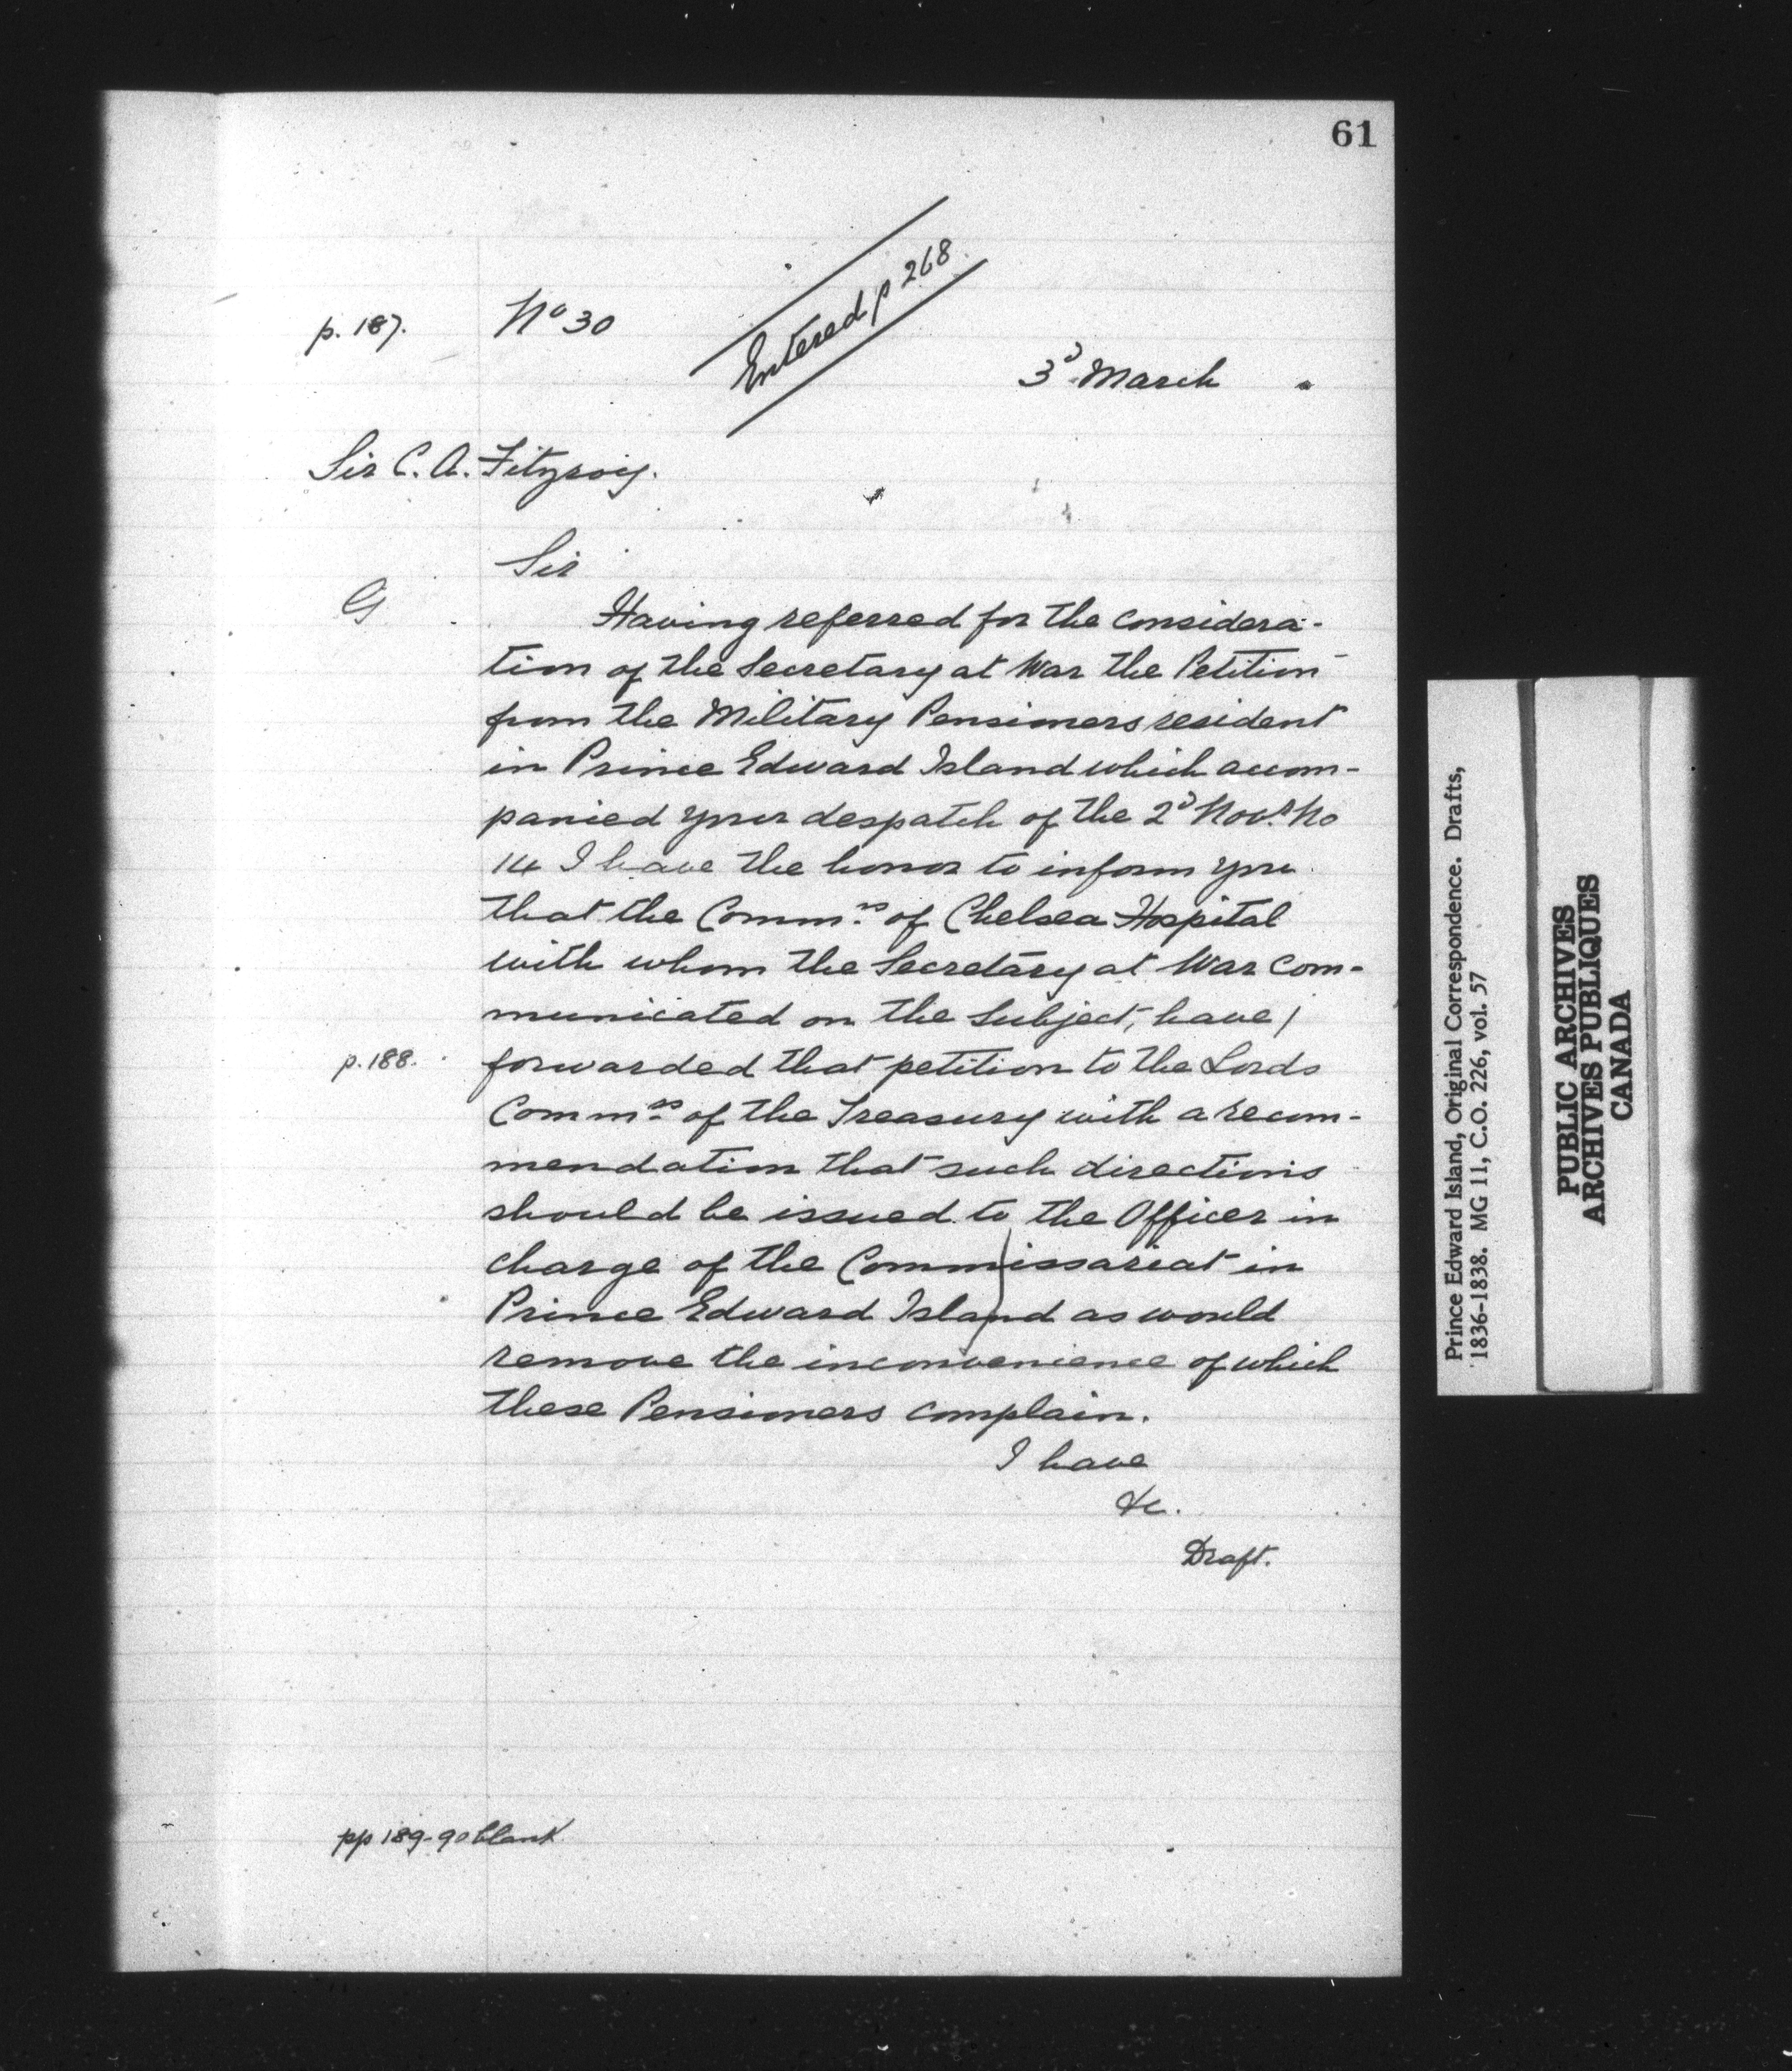 61
p. 187. Nº 30
Entered p 268
3d March
Sir C. A. Fitzroy.
Sir
G
Having referred for the considera-
tion of the Secretary at War the Petition
from the Military Pensioners resident
in Prince Edward Island which accom-
panied your despatch of the 2d Novr. No
14 I have the honor to inform you
that the Commrs. of Chelsea Hospital
with whom the Secretary at War com-
municated on the subject, have /
p. 188. forwarded that petition to the Lords
Commrs. of the Treasury with a recom-
mendation that such directions
should be issued to the Officer in
charge of the Commissariat in
Prince Edward Island as would
remove the inconvenience of which
these Pensioners complain.
I have
&c.
Draft.
pp 189-90 blank
Prince Edward Island, Original Correspondence. Drafts,
1836-1838. MG 11, C.O. 226, vol. 57
PUBLIC ARCHIVES
ARCHIVES PUBLIQUES
CANADA